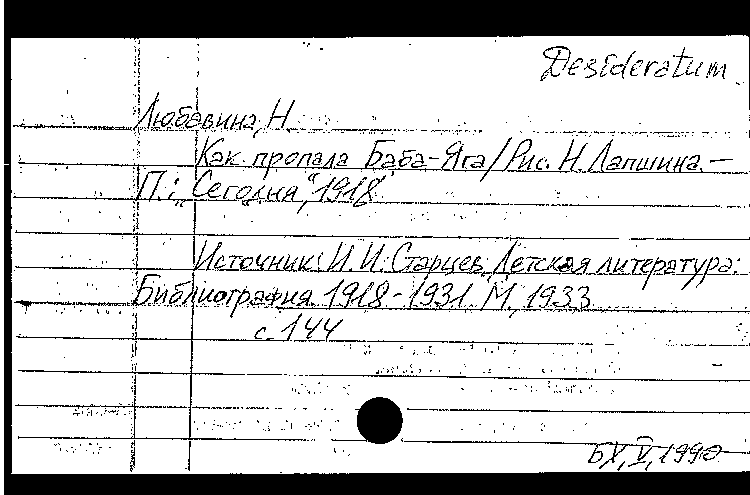 Desideratum
Любавина, Н.
Как пропала Баба-Яга / Рис. Н. Лапшина. –
П.: „Сегодня", 1918.
Источник: И. И. Старцев. Детская литература:
Библиография. 1918-1931. М., 1933
с. 144
БХ, V, 1990